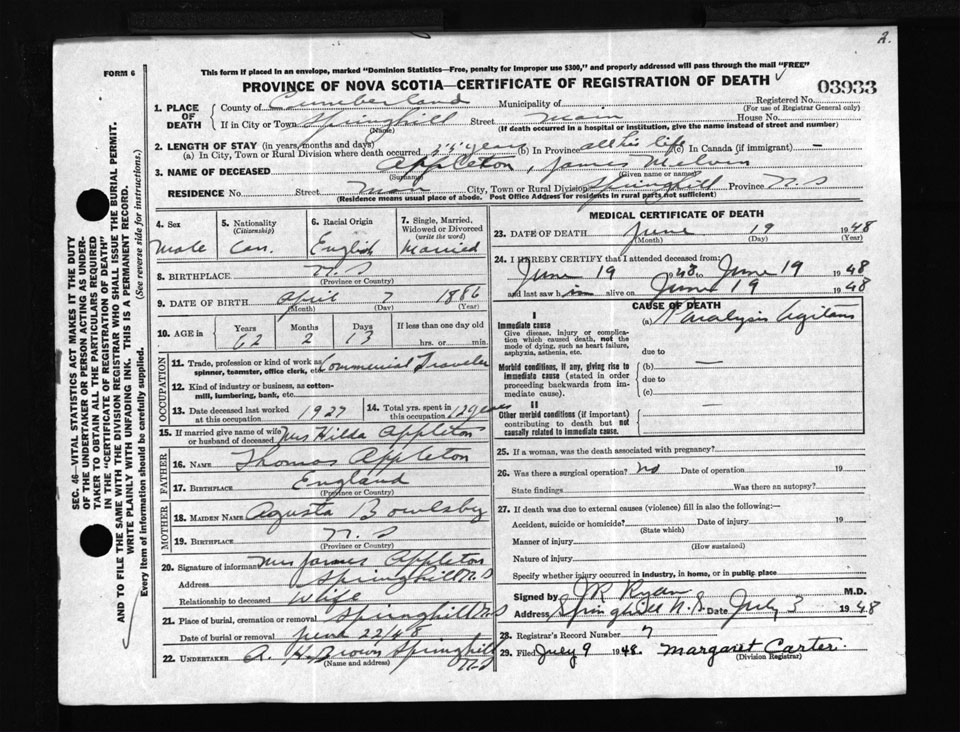 2.
FORM 6
This form if placed in an envelope, marked "Dominion Statistics—Free, penalty for improper use $300," and properly addressed will pass through the mail "FREE"
PROVINCE OF NOVA SCOTIA—CERTIFICATE OF REGISTRATION OF DEATH
03933
1. PLACE OF DEATH
County of Cumberland Municipality of Registered No.
(For use of Registrar General only)
If in City or Town Springhill Street Main House No.
(Name) (If death occurred in a hospital or institution, give the name instead of street and number)
2. LENGTH OF STAY (in years, months and days)
(a) In City, Town or Rural Division where death occurred years (b) In Province all his life (c) In Canada (if immigrant) —
3. NAME OF DECEASED Appleton, James Melvin
(Surname) (Given name or names)
RESIDENCE No. Street Main City, Town or Rural Division Springhill Province N.S
(Residence means usual place of abode. Post Office Address for residents in rural parts not sufficient)
4. Sex Male
5. Nationality (Citizenship) Can.
6. Racial Origin English
7. Single, Married, Widowed or Divorced (write the word) Married
8. BIRTHPLACE N.S
(Province or Country)
9. DATE OF BIRTH April 7 1886
(Month) (Day) (Year)
10. AGE in Years 62 Months 2 Days 13 If less than one day old
hrs. or min.
OCCUPATION
11. Trade, profession or kind of work as spinner, teamster, office clerk, etc. Commercial Traveler
12. Kind of industry or business, as cotton-mill, lumbering, bank, etc.
13. Date deceased last worked at this occupation 1927
14. Total yrs. spent in this occupation 12 years
15. If married give name of wife or husband of deceased Mrs Hilda Appleton
FATHER
16. NAME Thomas Appleton
17. BIRTHPLACE England
(Province or Country)
MOTHER
18. MAIDEN NAME Agusta Bowlsby
19. BIRTHPLACE N.S
(Province or Country)
20. Signature of informant Mrs James Appleton
Address Springhill N.S
Relationship to deceased Wife
21. Place of burial, cremation or removal Springhill N.S
Date of burial or removal June 22/48
22. UNDERTAKER A. H. Brown Springhill N.S
(Name and address)
MEDICAL CERTIFICATE OF DEATH
23. DATE OF DEATH June 19 1948
(Month) (Day) (Year)
24. I HEREBY CERTIFY that I attended deceased from:
June 19 1948 to June 19 1948
and last saw him alive on June 19 1948
CAUSE OF DEATH
I
Immediate cause
Give disease, injury or complication which caused death, not the mode of dying, such as heart failure, asphyxia, asthenia, etc.
(a) Paralysis Agitans
due to
Morbid conditions, if any, giving rise to immediate cause (stated in order proceeding backwards from immediate cause).
(b) —
due to
(c)
II
Other morbid conditions (if important) contributing to death but not causally related to immediate cause.
—
25. If a woman, was the death associated with pregnancy?
26. Was there a surgical operation? No Date of operation 19
State findings Was there an autopsy?
27. If death was due to external causes (violence) fill in also the following:—
Accident, suicide or homicide? Date of injury 19
(State which)
Manner of injury
(How sustained)
Nature of injury
Specify whether injury occurred in industry, in home, or in public place
Signed by J R Ryan M.D.
Address Springhill N.S. Date July 3 1948
28. Registrar's Record Number 7
29. Filed July 9 1948. Margaret Carter.
(Division Registrar)
SEC. 46—VITAL STATISTICS ACT MAKES IT THE DUTY
OF THE UNDERTAKER OR PERSON ACTING AS UNDER-
TAKER TO OBTAIN ALL THE PARTICULARS REQUIRED
IN THE "CERTIFICATE OF REGISTRATION OF DEATH"
AND TO FILE THE SAME WITH THE DIVISION REGISTRAR WHO SHALL ISSUE THE BURIAL PERMIT.
WRITE PLAINLY WITH UNFADING INK. THIS IS A PERMANENT RECORD.
Every item of information should be carefully supplied. (See reverse side for instructions.)